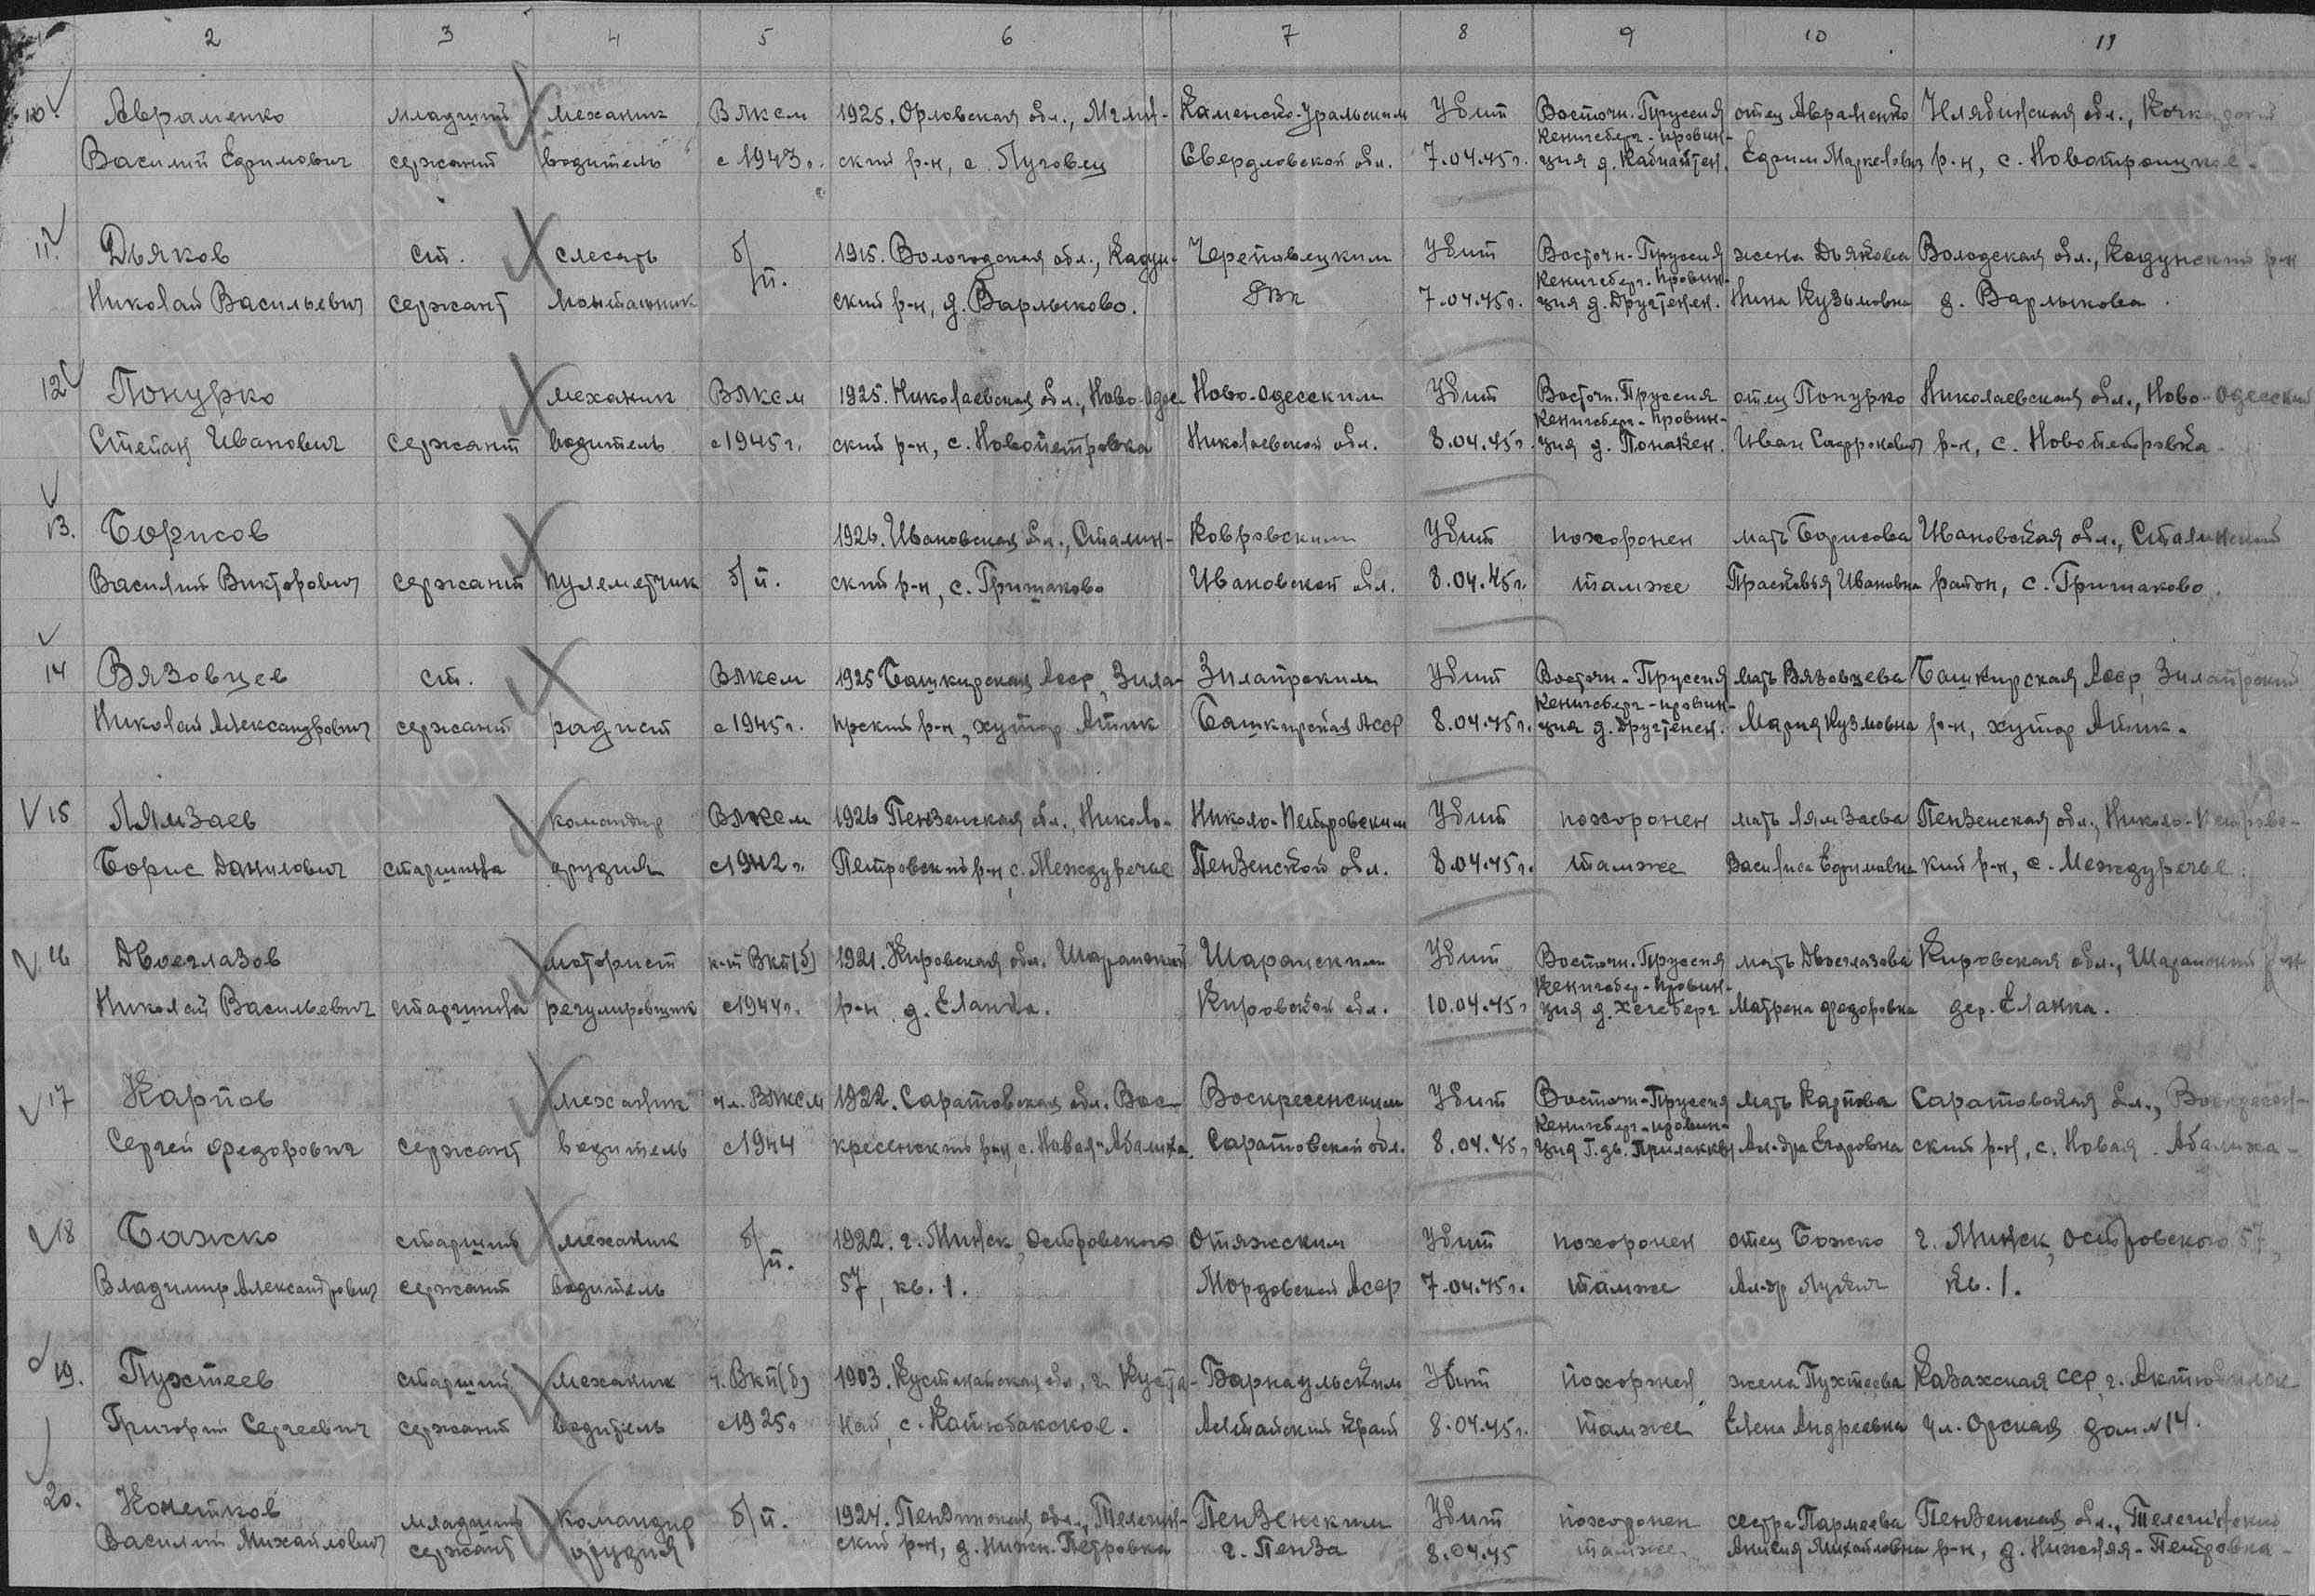 2 3 4 5 6 7 8 9 10 11
10. Авраменко младший механик ВЛКСМ 1925. Орловская обл., Мглин- Каменско-Уральским Убит Восточн. Пруссия отец Авраменко Челябинская обл., Кочкарский
Кенигсберг-провин-
Василий Ефимович сержант водитель с 1943г. ский р-н, с. Луговец Свердловской обл. 7.04.45г. ция д. Ефим Маркелович р-н, с. Новотроицкое.
11. Дьяков ст. слесарь б/п. 1915. Вологодская обл., Кадуй- Череповецким Убит Восточн. Пруссия жена Дьякова Володская обл., Кадуйский р-н
Кенигсберг-провин-
Николай Васильевич сержант монтажник ский р-н, д. Варлыково. РВК 7.04.45г. ция д. Другтенен. Нина Кузьмовна д. Варлыкова.
12 Покурко механик ВЛКСМ 1925. Николаевская обл., Ново-Одес- Ново-Одесским Убит Восточн. Пруссия отец Покурко Николаевская обл., Ново-Одесский
Кенигсберг-провин-
Степан Иванович сержант водитель с 1945г. ский р-н, с. Новопетровка Николаевской обл. 8.04.45г. ция д. Понакен. Иван Сафронович р-н, с. Новопетровка.
13. Борисов 1926. Ивановская обл., Сталин- Ковровским Убит похоронен мать Борисова Ивановская обл., Сталинский
Василий Викторович сержант пулеметчик б/п. ский р-н, с. Гришаково Ивановской обл. 8.04.45г. тамже Прасковья Ивановна район, с. Гришаково.
14 Вязовцев ст. ВЛКСМ 1925 Башкирская Асср, Зила- Зилаирским Убит Восточн-Пруссия мать Вязовцева Башкирская Асср, Зилаирский
Кенигсберг-провин-
Николай Александрович сержант радист с 1945г. ирский р-н, хутор Башкирская Асср 8.04.45г. ция д. Другтенен. Мария Кузмовна р-н, хутор
15 Лямзаев командир ВЛКСМ 1926 Пензенская обл., Николо- Николо-Петровским Убит похоронен мать Лямзаева Пензенская обл., Николо-Петровс-
Борис Данилович старшина орудия с 1942г. Петровский р-н с. Междуречье Пензенской обл. 8.04.45г. тамже Василиса Ефимовна кий р-н, с. Междуречье.
16 Двоеглазов моторист к-т Вкп(б) 1921. Кировская обл. Шаранский Шаранским Убит Восточн. Пруссия мать Двоеглазова Кировская обл., Шаранский р-н
Кенигсбер-провин-
Николай Васильевич старшина регулировщик с 1944г. р-н, д. Еланка. Кировской обл. 10.04.45г ция д. Хегеберг Матрена Федоровна дер. Еланка.
17 Карпов механик чл. ВЛКСМ 1922. Саратовская обл. Вос- Воскресенским Убит Восточн-Пруссия мать Карпова Саратовская обл., Воскресен-
Кенигсберг-провин-
Сергей Федорович сержант водитель с 1944 кресенский р-н, с. Новая-Абалиха. Саратовской обл. 8.04.45г ция Г.дв. Ал-дра Егоровна ский р-н, с. Новая Абалиха-
18 Божко старший механик б/п. 1922. г. Минск, Островского Атяжским Убит похоронен отец Божко г. Минск, Островского 57,
Владимир Александрович сержант водитель 57, кв. 1. Мордовской Асср 7.04.45г. тамже Ал-др Лукич кв. 1.
19. Пухтеев старший механик ч. Вкп(б) 1903. Кустанайская обл, г. Куста- Барнаульским Убит похоронен жена Пухтеева Казахская сср, г. Актюбинск
Григорий Сергеевич сержант водитель с 1925г най, с. Алтайский край 8.04.45г. тамже Елена Андреевна ул. Орская дом N 14.
20. Конетков младший командир б/п. 1924. Пензинская обл., Телегин- Пензенским Убит похоронен сестра Пармеева Пензенская обл., Телегинский
Василий Михайлович сержант орудия ский р-н, д. Нижн. Петровка г. Пенза 8.04.45 тамже Анисия Михайловна р-н, д. Нижняя-Петровка-